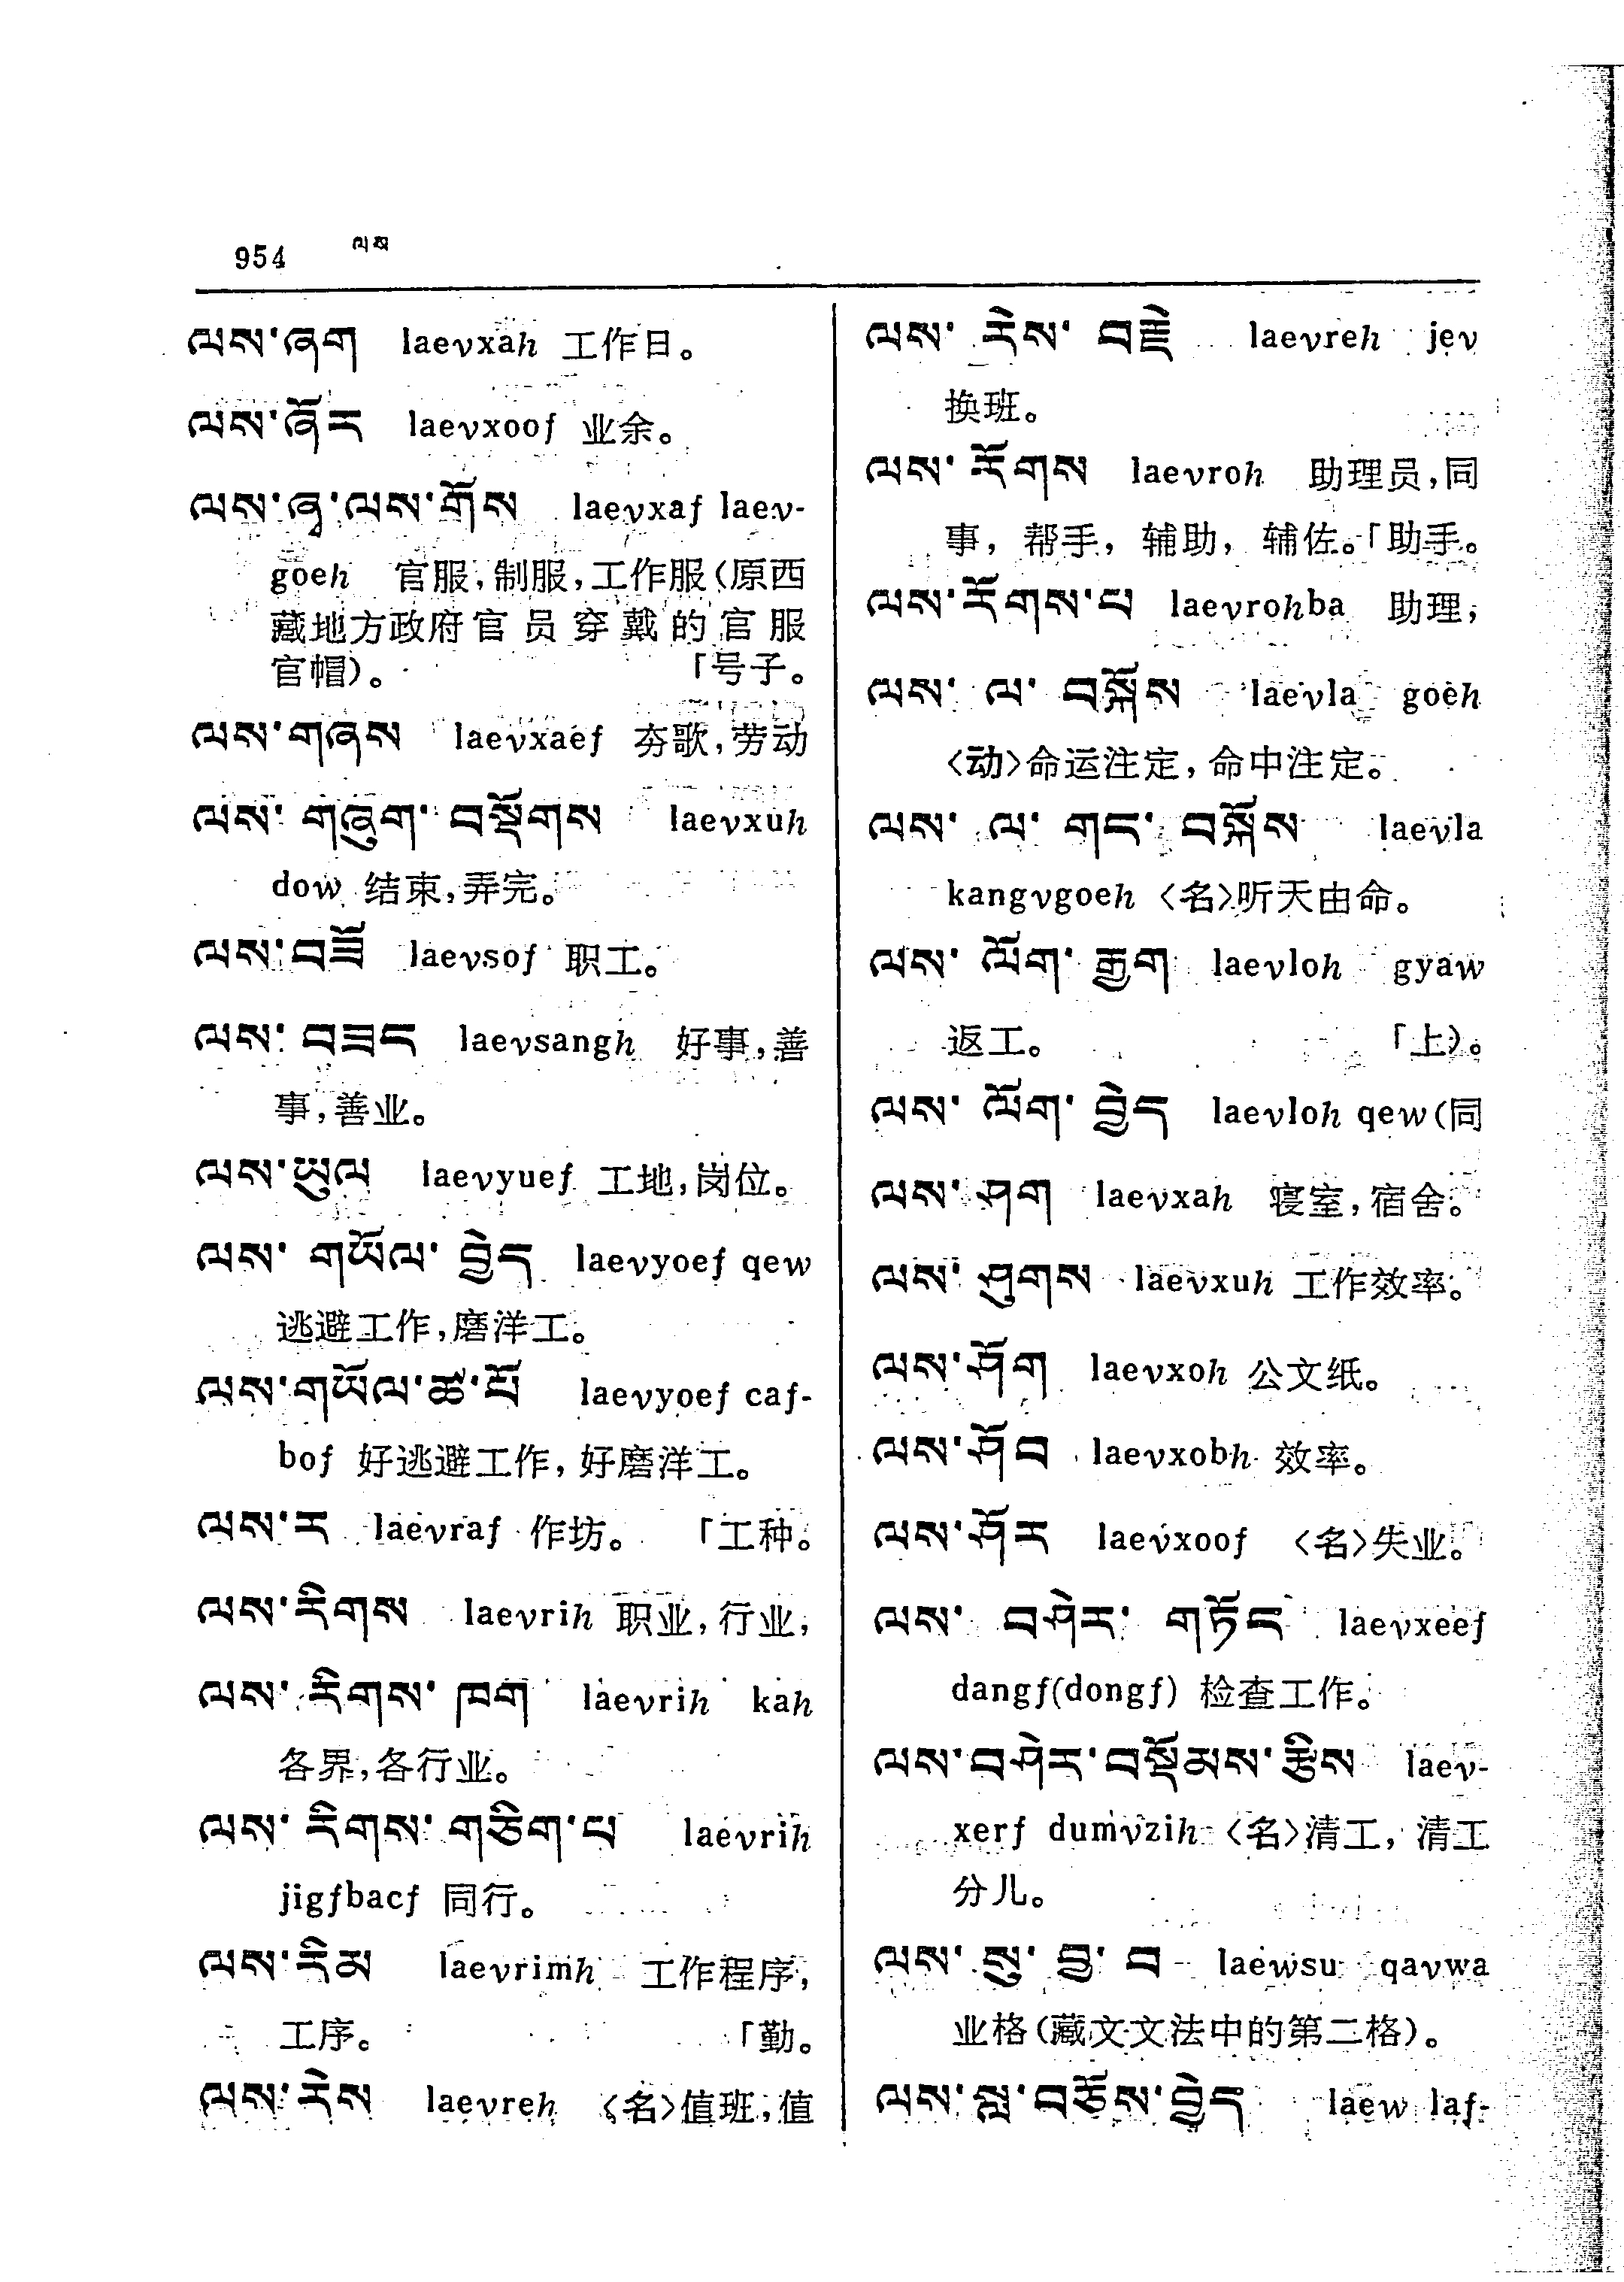 954 ལས
ལས་ཞག laevxah 工作日。
ལས་ཞོར laevxoof 业余。
ལས་ཞྭ་ལས་གོས laevxaf laev-
goeh 官服,制服,工作服(原西
藏地方政府官员穿戴的官服
官帽)。 「号子。
ལས་གཞས laevxaef 夯歌,劳动
ལས་ གཞུག་ བསྡོགས laevxuh
dow 结束,弄完。
ལས་བཟོ laevsof 职工。
ལས་ བཟང laevsangh 好事,善
事,善业。
ལས་ཡུལ laevyuef 工地,岗位。
ལས་ གཡོལ་ བྱེད laevyoef qew
逃避工作,磨洋工。
ལས་གཡོལ་ཚ་པོ laevyoef caf-
bof 好逃避工作,好磨洋工。
ལས་ར laevraf 作坊。 「工种。
ལས་རིགས laevrih 职业,行业,
ལས་ རིགས་ ཁག laevrih kah
各界,各行业。
ལས་ རིགས་ གཅིག་པ laevrih
jigfbacf 同行。
ལས་རིམ laevrimh 工作程序,
工序。 「勤。
ལས་རེས laevreh 〈名〉值班,值
ལས་ རེས་ བརྗེ laevreh jev
换班。
ལས་ རོགས laevroh 助理员,同
事, 帮手, 辅助, 辅佐。「助手。
ལས་རོགས་པ laevrohba 助理,
ལས་ ལ་ བསྐོས laevla goeh
〈动〉命运注定,命中注定。
ལས་ ལ་ གང་ བསྐོས laevla
kangvgoeh 〈名〉听天由命。
ལས་ ལོག་ རྒྱག laevloh gyaw
返工。 「上)。
ལས་ ལོག་ བྱེད laevloh qew(同
ལས་ ཤག laevxah 寝室,宿舍。
ལས་ ཤུགས laevxuh 工作效率。
ལས་ཤོག laevxoh 公文纸。
ལས་ཤོབ laevxobh 效率。
ལས་ཤོར laevxoof 〈名〉失业。
ལས་ བཤེར་ གཏོང laevxeef
dangf(dongf) 检查工作。
ལས་བཤེར་བསྡོམས་རྩིས laev-
xerf dumvzih 〈名〉清工, 清工
分儿。
ལས་ སུ་ བྱ་ བ laewsu qavwa
业格(藏文文法中的第二格)。
ལས་སླ་བཅོས་བྱེད laew laf-